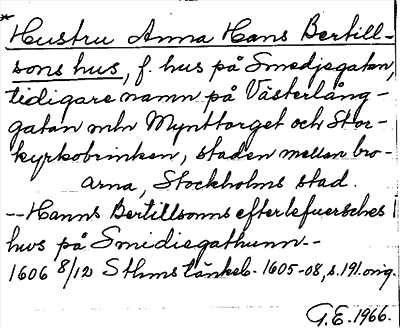 *
Hustru Anna Hans Bertill-
sons hus, f. hus på Smedjegatan,
tidigare namn på Västerlång-
gatan mln Mynttorget och Stor-
kyrkobrinken, staden mellan bro-
arna, Stockholms stad.
--Hanns Bertillsonns efterlefuersches
huus på Smidiegathunn--
1606 8/12 Sthms tänkeb. 1605-08, s. 191 orig.
G.E. 1966.